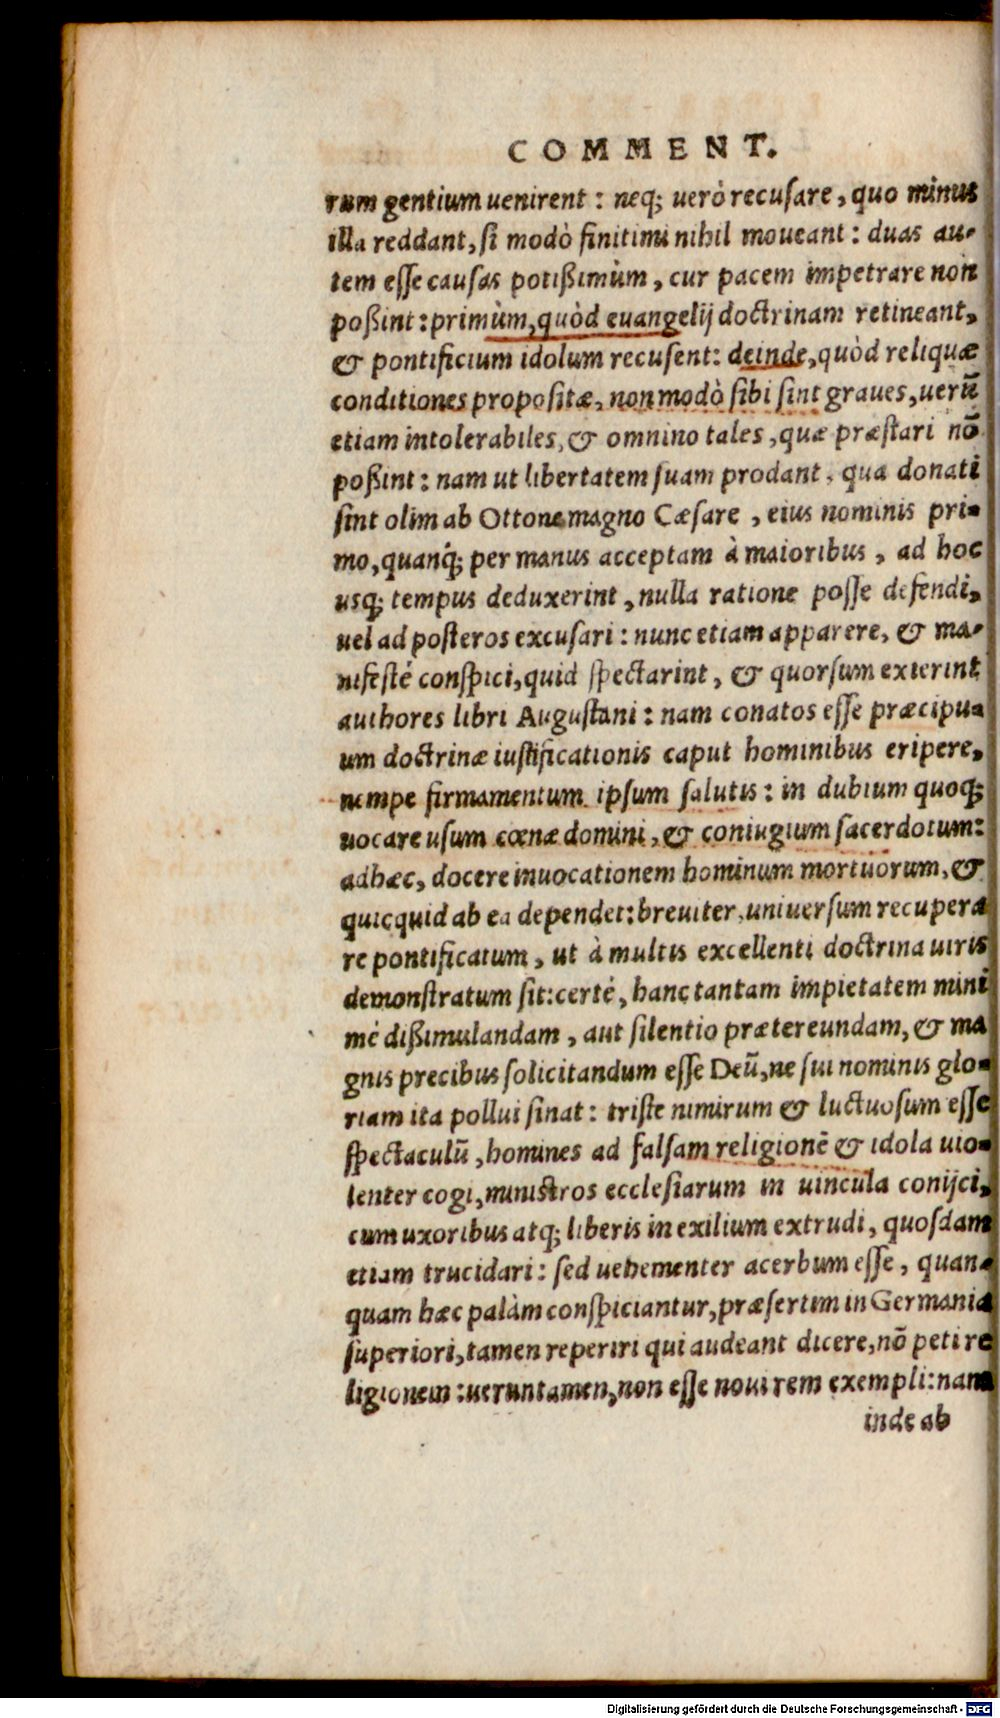 COMMENT.
rum gentium uenirent : neq; uerò recusare, quo minus
illa reddant, si modò finitimi nihil moueant : duas au-
tem esse causas potißimùm, cur pacem impetrare non
poßint : primùm, quòd euangelij doctrinam retineant,
& pontificium idolum recusent: deinde, quòd reliquæ
conditiones propositæ, non modò sibi sint graues, uerũ
etiam intolerabiles, & omnino tales, quæ præstari nõ
poßint : nam ut libertatem suam prodant, qua donati
sint olim ab Ottone magno Cæsare, eius nominis pri-
mo, quanq; per manus acceptam à maioribus, ad hoc
usq; tempus deduxerint, nulla ratione posse defendi,
uel ad posteros excusari : nunc etiam apparere, & ma-
nifestè conspici, quid spectarint, & quorsum exierint
authores libri Augustani : nam conatos esse præcipu-
um doctrinæ iustificationis caput hominibus eripere,
nempe firmamentum ipsum salutis : in dubium quoq;
uocare usum cœnæ domini, & coniugium sacerdotum:
adhæc, docere inuocationem hominum mortuorum, &
quicquid ab ea dependet: breuiter, uniuersum recupera
re pontificatum, ut à multis excellenti doctrina uiris
demonstratum sit: certè, hanc tantam impietatem mini
mè dißimulandam, aut silentio prætereundam, & ma
gnis precibus solicitandum esse Deũ, ne sui nominis glo-
riam ita pollui sinat : triste nimirum & luctuosum esse
spectaculũ, homines ad falsam religionẽ & idola uio-
lenter cogi, ministros ecclesiarum in uincula conijci,
cum uxoribus atq; liberis in exilium extrudi, quosdam
etiam trucidari : sed uehementer acerbum esse, quan-
quam hæc palàm conspiciantur, præsertim in Germania
superiori, tamen reperiri qui audeant dicere, nõ peti re
ligionem : ueruntamen, non esse noui rem exempli: nam
inde ab
Digitalisierung gefördert durch die Deutsche Forschungsgemeinschaft - DFG